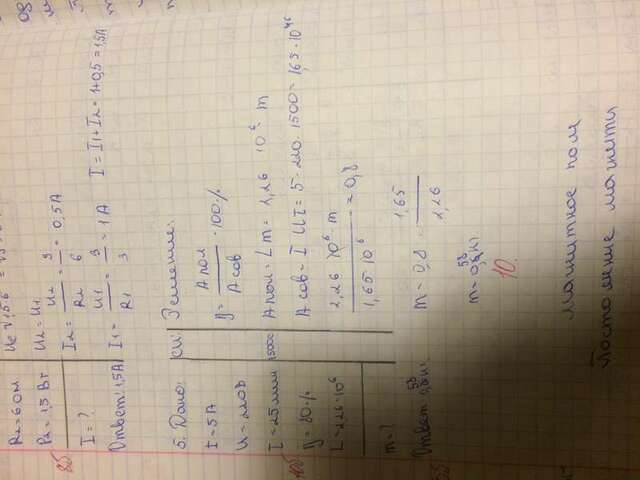 R₂=6 Ом
P₂=1,5 Вт
I=?
Ответ: 1,5А
U₂=U₁
I₂= U₂/R₂ = 3/6 = 0,5 А
I₁= U₁/R₁ = 3/3 = 1 А
I=I₁+I₂=1+0,5=1,5А
5. Дано:
I=5А
U=220В
t=25мин
η=80%
L=2,26·10⁶
m=?
СИ:
1500с
Решение:
η= Апол/Асов ·100%
Апол=Lm=2,26 10⁶ m
Асов=I U t=5·220·1500=1,65·10⁶
2,26 10⁶ m / 1,65·10⁶ =0,8
m=0,8· 1,65/2,26
m=0,58кг
10.
Магнитное поле
Постоянные магниты